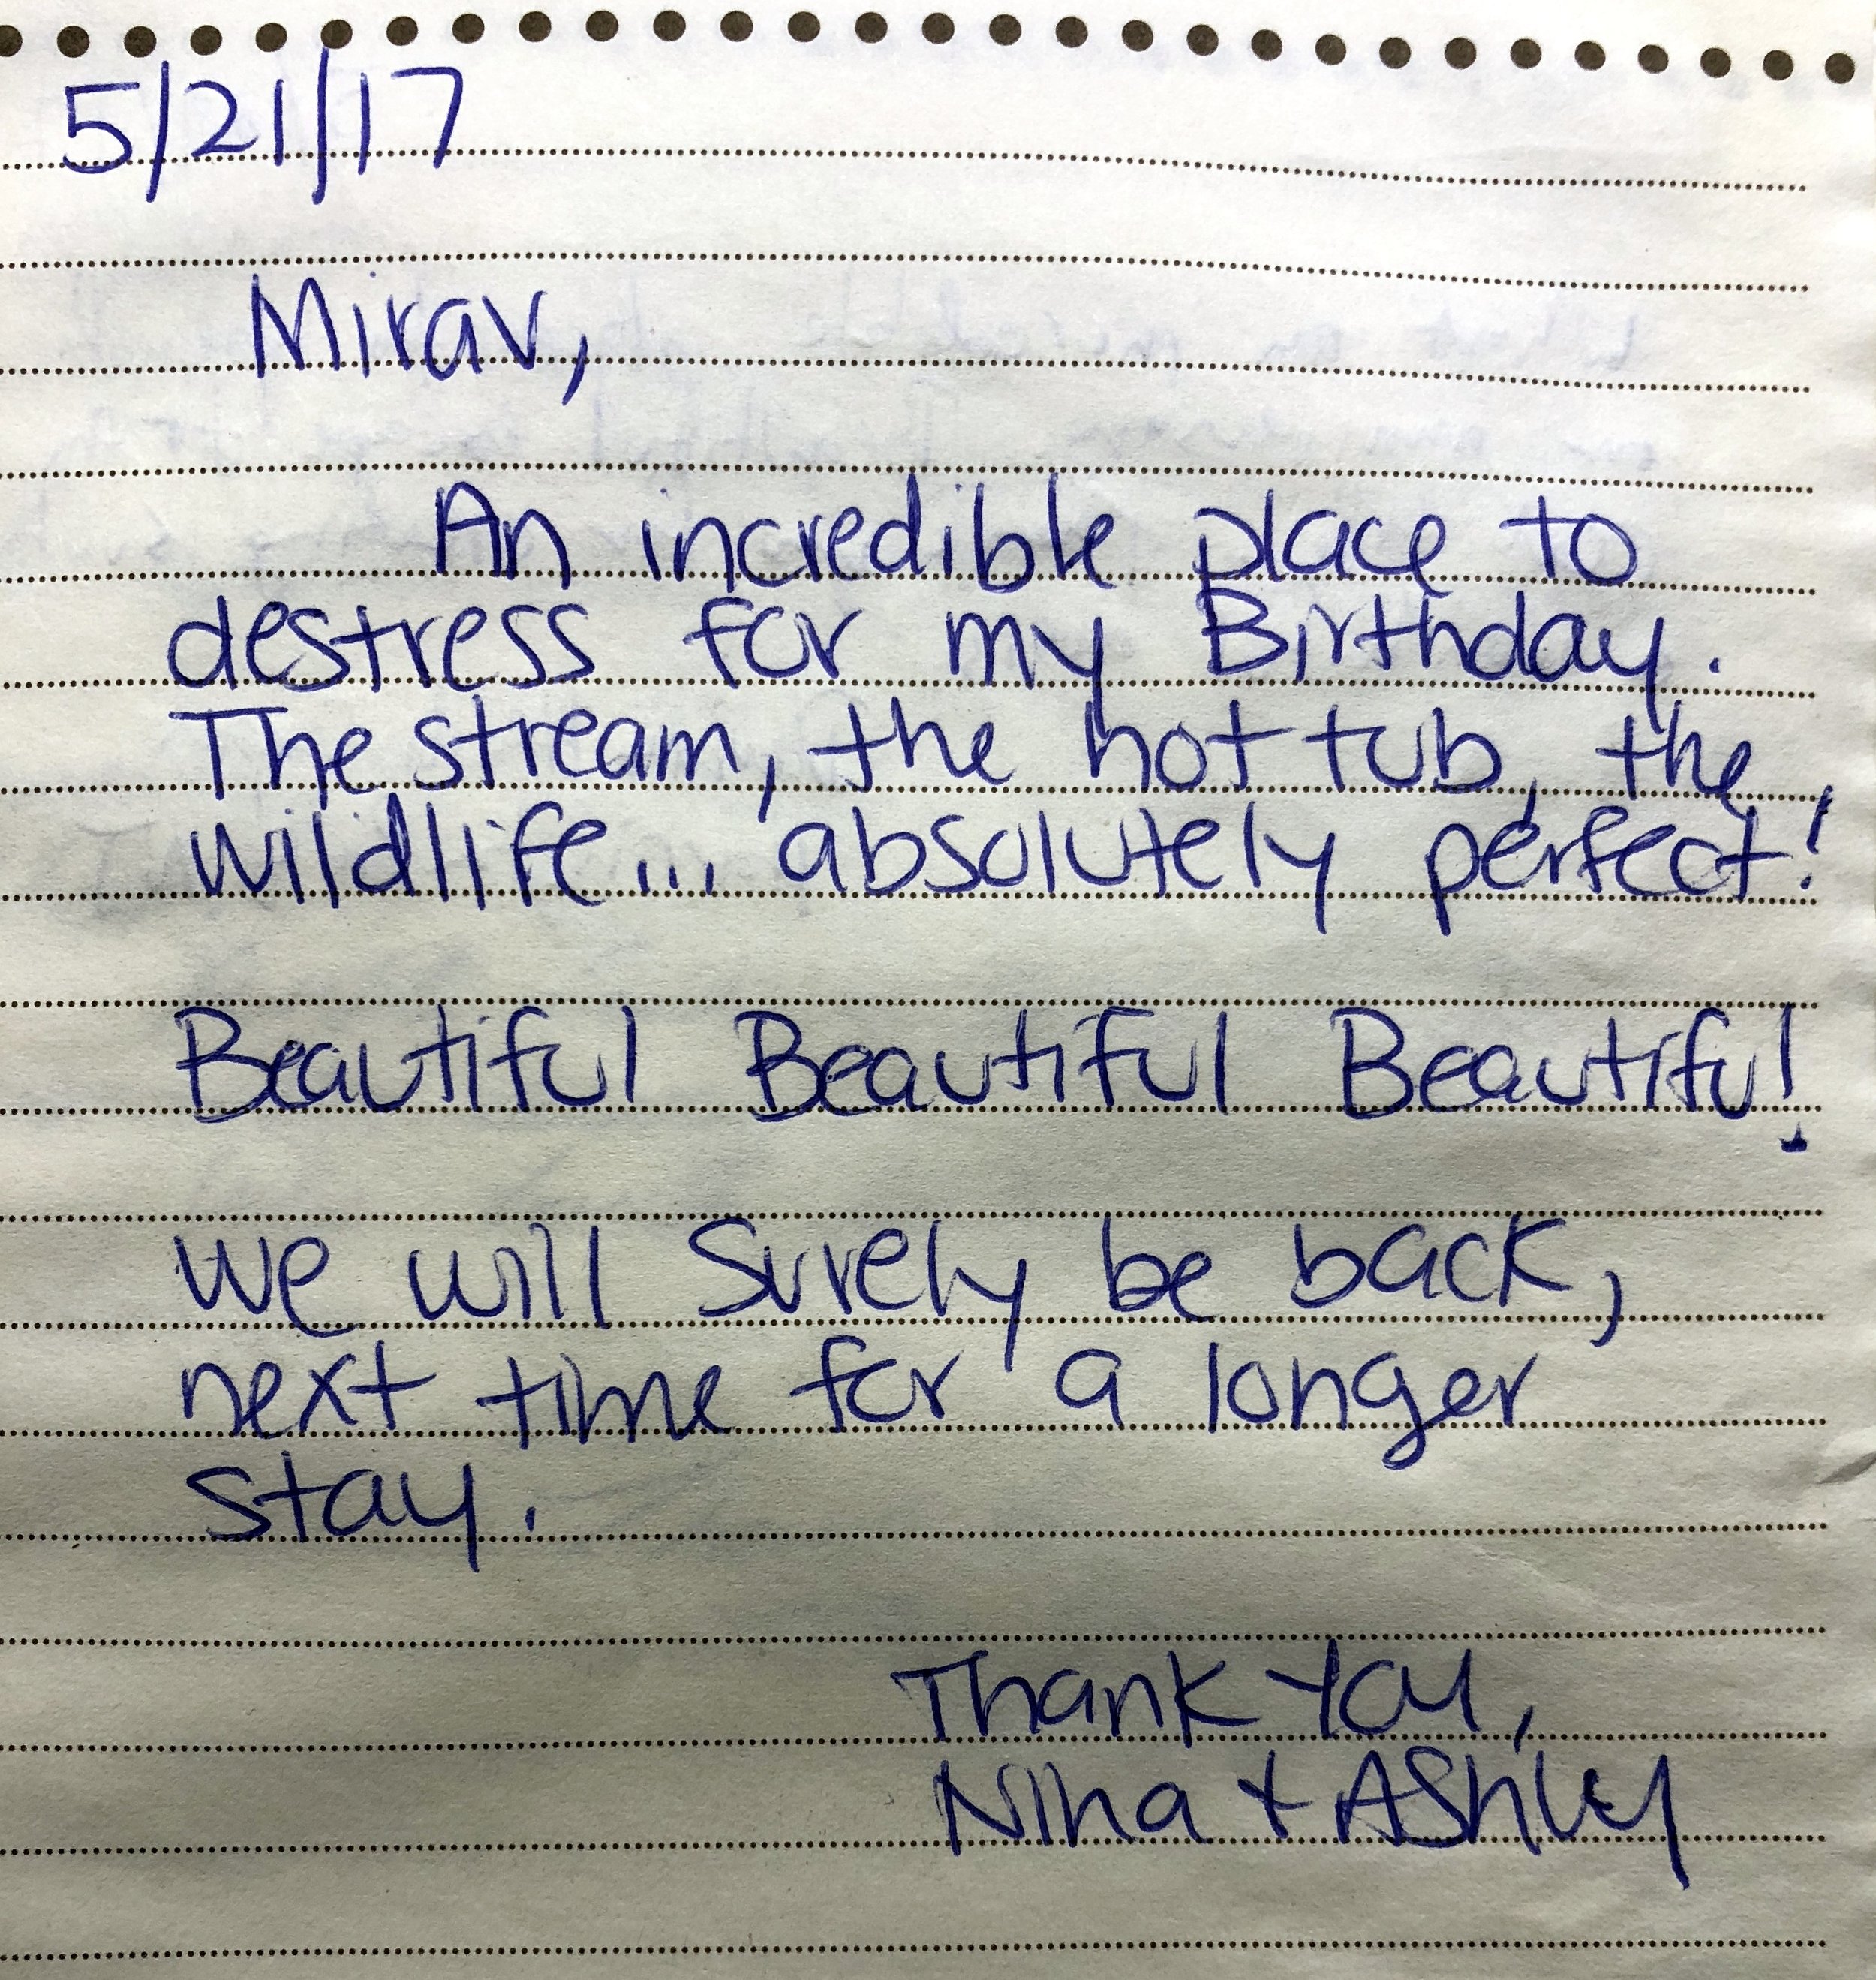 5/21/17
Mirav,
An incredible place to
destress for my Birthday.
The stream, the hot tub, the
wildlife... absolutely perfect!
Beautiful Beautiful Beautiful!
We will surely be back,
next time for a longer
stay.
Thank You,
Nina + Ashley